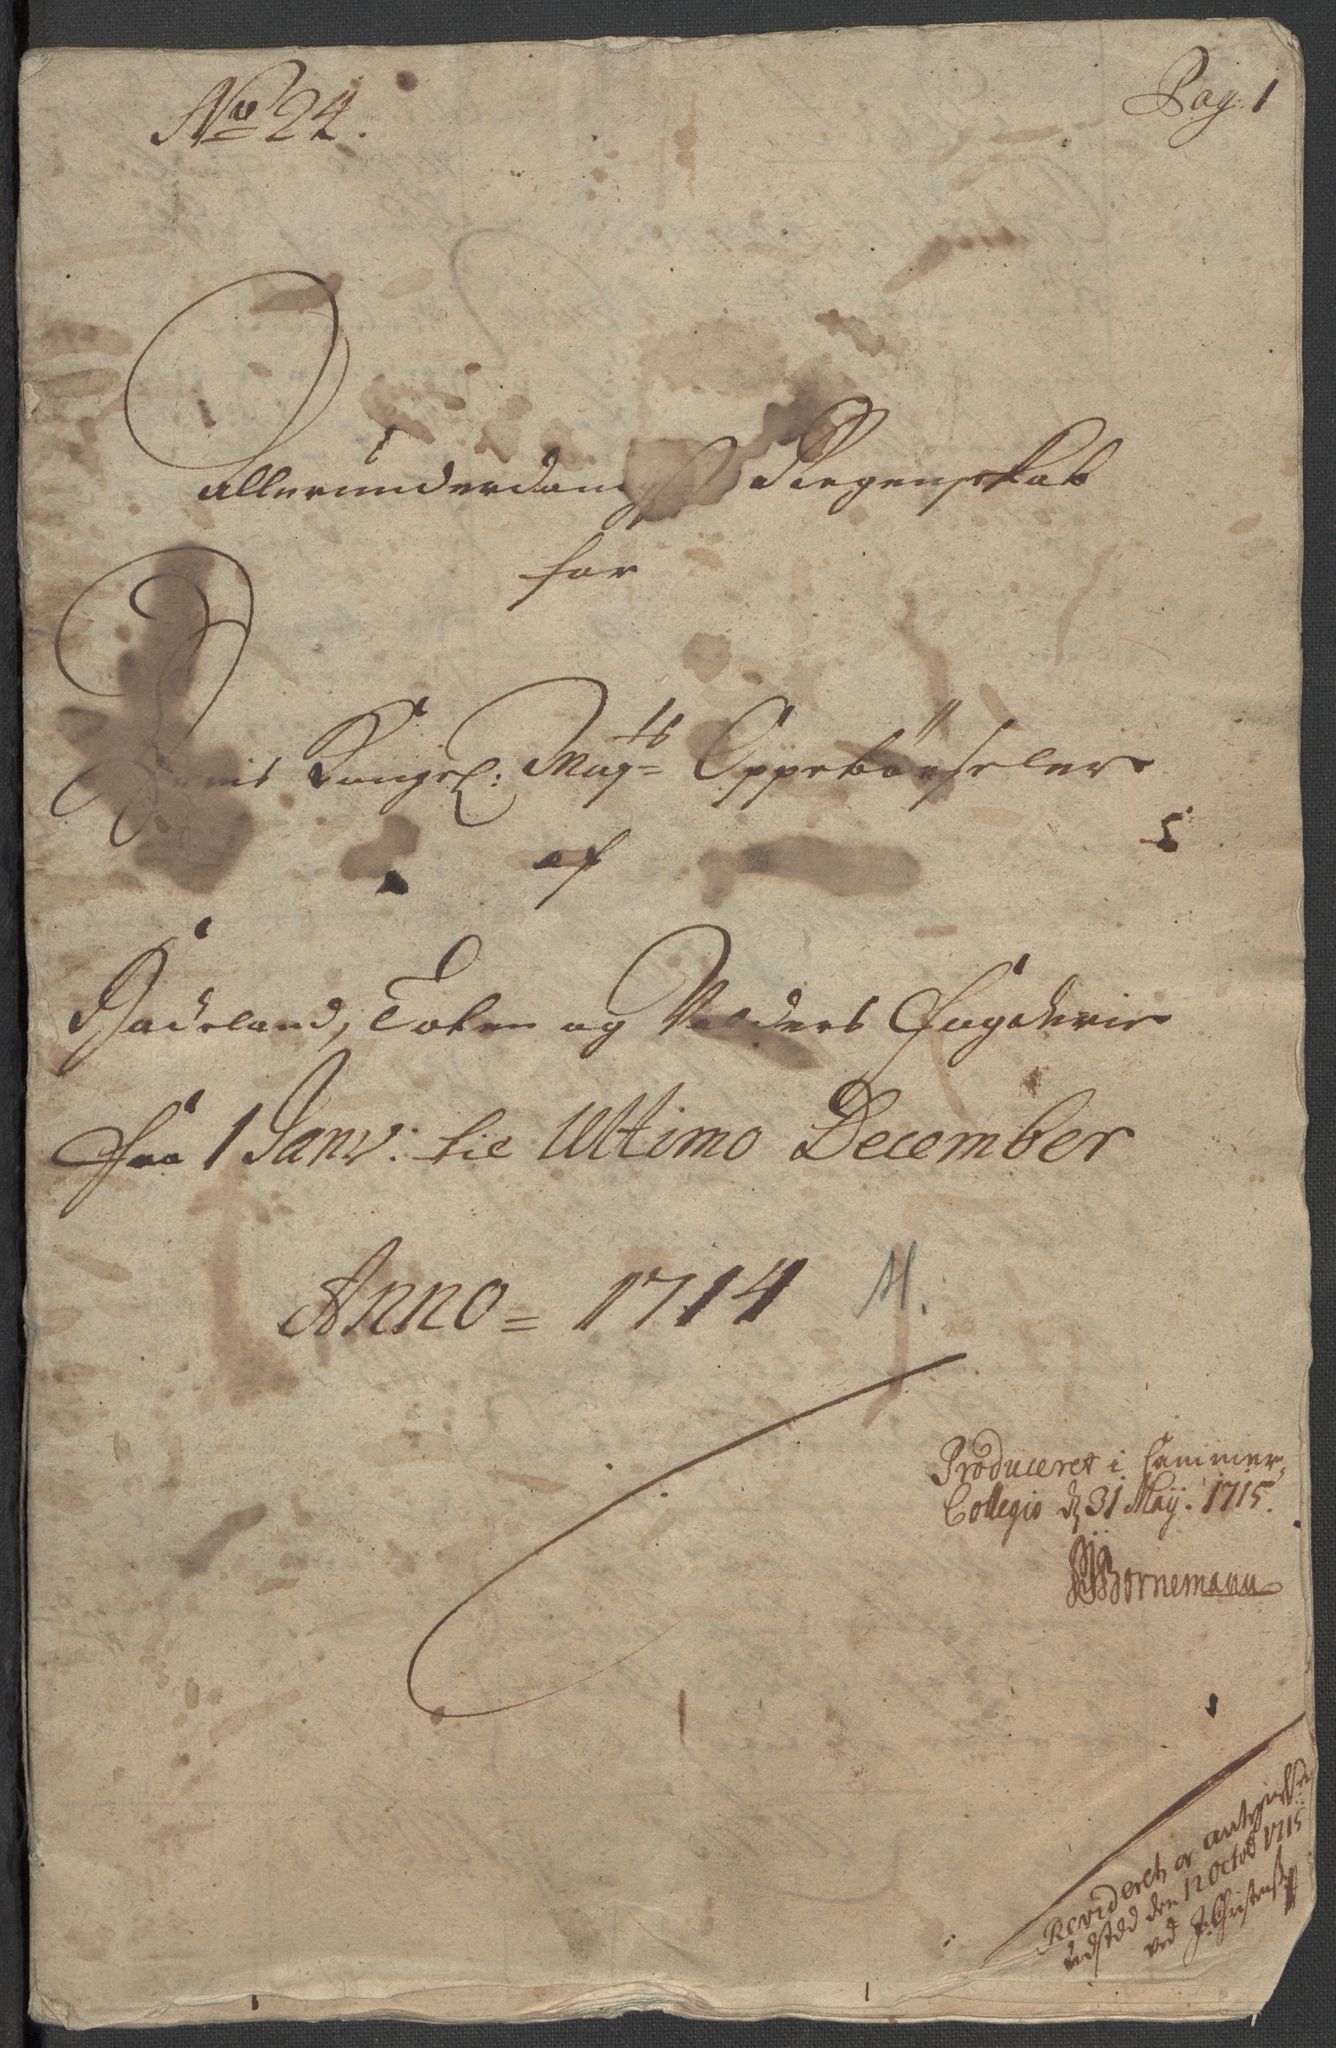 No 24.
Pag: 1
Allerunderdanigst Regenskab
for
Hans Kongel: Mayts Oppebørseler
af
Hadeland, Toten og Valders Fogderie
fra 1 Janv: til Ultimo December
Anno = 1714
Produceret i Cammer
Collegio d 31 Maij. 1715.
Bornemann
Revideret og antegnelse
udstæd den 12 Octob 1715
ved J: Christens